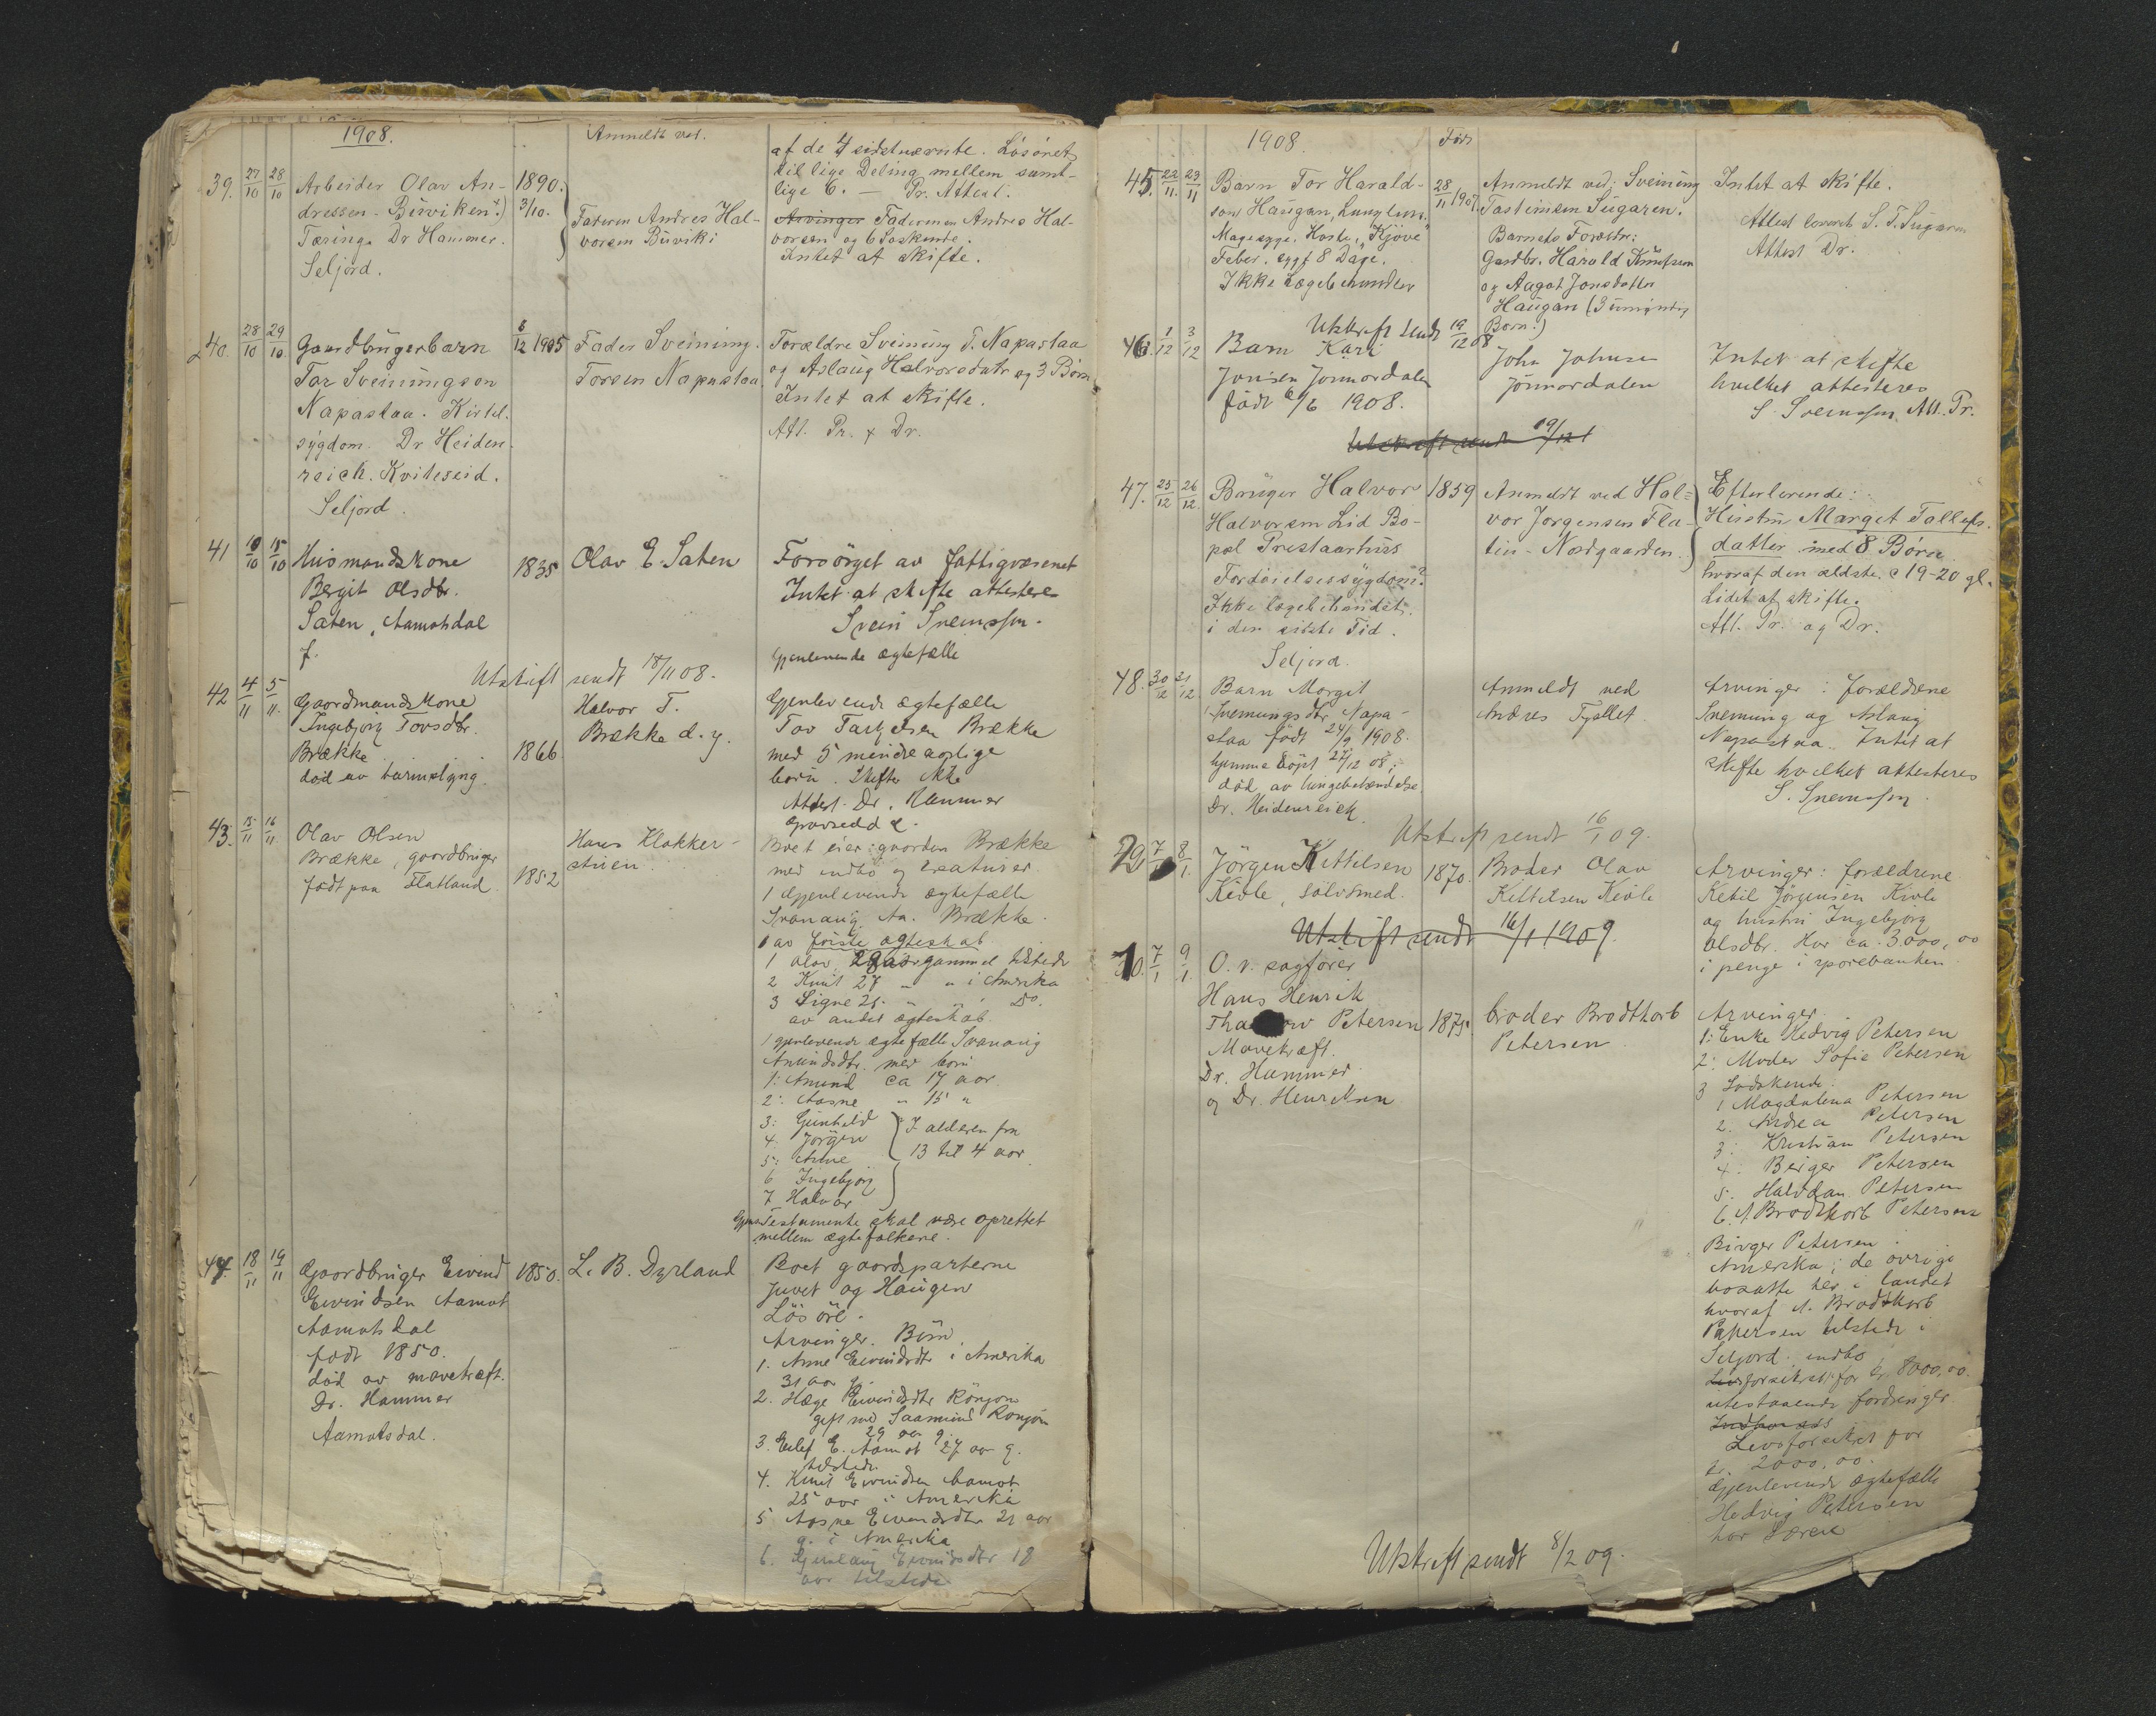 1908.
Anmeldt ved.
af de 4 sidstnævnte. Løsøret
til lige Deling mellem samt-
lige 6. — Pr. Attest.
39. 27/10 28/10 Arbeider Olav An-
dressen - Buviken.)
Tæring. Dr Hammer.
Seljord.
1890.
3/10.
Faderen Andres Hal-
vorsen Buviki
Arvinger Faderen Andres Hal-
vorsen og 6 Søskende.
Intet at skifte.
40. 28/10 29/10 Gaardbrugerbarn
Tor Sveinungson
Napastaa. Kirtel-
sygdom. Dr Heiden-
reich. Kviteseid.
Seljord.
8/12 1905
Fader Sveinung
Torsen Napastaa
Forældre Sveinung T. Napastaa
og Aslaug Halvorsdatr og 3 Børn
Intet at skifte.
Att. Pr. & Dr.
41 10/10 15/10 Husmandskone
Bergit Olsdtr.
Saten, Aamotsdal
f.
1835
Olav E. Saten
Forsørget av fattigvæsenet
Intet at skifte attesteres
Svein Sveinssen.
Gjenlevende ægtefælle
Utskrift sendt 18/11 08.
42 4/11 5/11 Gaardmandskone
Ingebjorg Tovsdtr.
Brække
død av tarmslyng.
1866
Halvor T.
Brække d. y.
Gjenlevende ægtefælle
Tov Tarjeisen Brække
med 5 mindreaarige
børn. Skifte ikke
Attest. Dr. Hammer
43. 15/11 16/11 Olav Olsen
Brække, gaardbruger
født paa Flatland
1852
Hans Klokker-
stuen
Boet eier gaarden Brække
med indbo og creaturer.
1 Gjenlevende ægtefælle
Svanaug Aa. Brække.
av første ægteskab
1 Olav 29 aar gammel tilstede
2 Knut 27 " " i Amerika
3 Signe 25 " " Do.
av andet ægteskab.
1 gjenlevende ægtefælle Svanaug
Amundsdtr. med børn
1: Amund ca 17 aar
2: Aasne " 15 "
3: Gunhild
4. Jørgen
5: Anne
6 Ingebjørg
7 Halvor
I alderen fra
13 til 4 aar
Testamente skal være oprettet
mellem ægtefolkene.
44. 18/11 19/11 Gaardbruger Eivind
Eivindsen Aamot
Aamotsdal
født 1850.
død av mavekræft.
Dr. Hammer
Aamotsdal.
1850.
L. B. Dyrland
Boet gaardsparterne
Juvet og Haugen
Løsøre.
Arvinger. Børn
1. Anne Eivindsdtr i Amerika
31 aar g.
2. Hæge Eivindsdtr Rønjom
gift med Saamund Rønjom
29 aar g.
3. Eilef E. Aamot 27 aar g.
tilstede.
4. Knut Eivindsen Aamot
25 aar i Amerika
5 Aasne Eivindsdtr 21 aar
g. i Amerika
6. Eivindsdtr 18
aar tilstede
1908.
Født
45. 22/11 23/11 Barn Tor Harald-
son Haugan,
Mavesyge. Hoste, "Kjøve"
Feber. syg i 8 Dage.
Ikke lægebehandlet
28/11 1907.
Anmeldt ved: Sveinung
Tosteinsen Sugaren.
Barnets Foreldr:
Gardbr. Harald Knutsen
og Aagot Jonsdatter
Haugan (3 umyndig
Born.)
Intet at skifte.
Attest S. T. Sugaren
Attest Dr.
Utskrift sendt 19/12 08
46. 1/12 3/12 Barn Kari
Jonsen Jonnordalen
født 6/6 1908.
John Johnsen
Jonnordalen
Intet at skifte
hvilket attesteres
S. Sveinssen. Att. Pr.
Utskrift sendt 19/12
47. 25/12 26/12 Bruger Halvor
Halvorsen Lid Bo-
pæl Prestaarhus
Fordøielsessygdom?
Ikke lægebehandlet
i den sidste Tid.
Seljord.
1859
Anmeldt ved Hal-
vor Jørgensen Fla-
tin - Nordgaarden.
Efterlevende:
Hustru Marget Tallefs-
datter med 8 Børn
hvoraf den ældste c 19-20 gl.
Lidet at skifte.
Att. Pr. og Dr.
48. 30/12 31/12 Barn Margit
Sveinungsdtr Napa-
staa født 24/9 1908.
hjemme døpt 27/12 08;
død av lungebetændelse
Dr. Heidenreich.
Anmeldt ved
Andres Fjellet
Arvinger: forældrene
Sveinung og Aslaug
Napastaa. Intet at
skifte hvilket attesteres
S. Sveinssen.
Utskrift sendt 16/1 09.
7/1 8/1. Jörgen Kettelsen
Kivle, sølvsmed.
1870.
Broder Olav
Kettelsen Kivle
Arvinger: forældrene
Ketil Jørgensen Kivle
og hustru Ingebjørg
Olsdtr. Har ca. 3000,00
i penge i sparebanken
Utskrift sendt 16/1 1909.
7/1 9/1. O. r. sagfører
Hans Henrik
Petersen
Mavekræft.
Dr. Hammer.
og Dr. Henriksen
1875.
broder Brodtkorb
Petersen
Arvinger
1: Enke Hedvig Petersen
2: Moder Sofie Petersen
3 Sødskende:
1 Magdalena Petersen
2. Andrea Petersen
3: Kristian Petersen
4. Birger Petersen
5. Halvdan Petersen
6. A Brodtkorb Petersen
Birger Petersen i
Amerika; de øvrige
bosatte her i landet
hvoraf A. Brodtkorb
Petersen tilstede i
Seljord. indbo
forsikret for kr 8000,00.
utestaaende fordringer.
Livsforsikret for
kr. 2000,00.
Gjenlevende ægtefælle
Hedvig Petersen
har
Utskrift sendt 8/2 09.